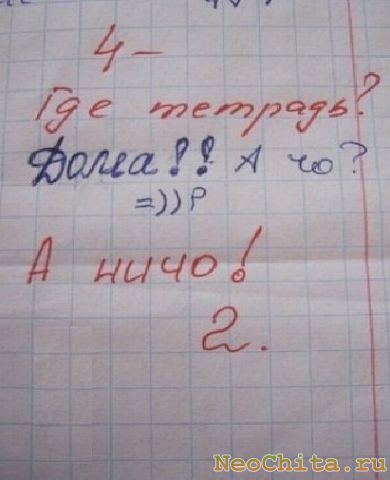 4-
Где тетрадь?
Дома!! А чо?
=))P
А ничо!
2.
NeoChita.ru